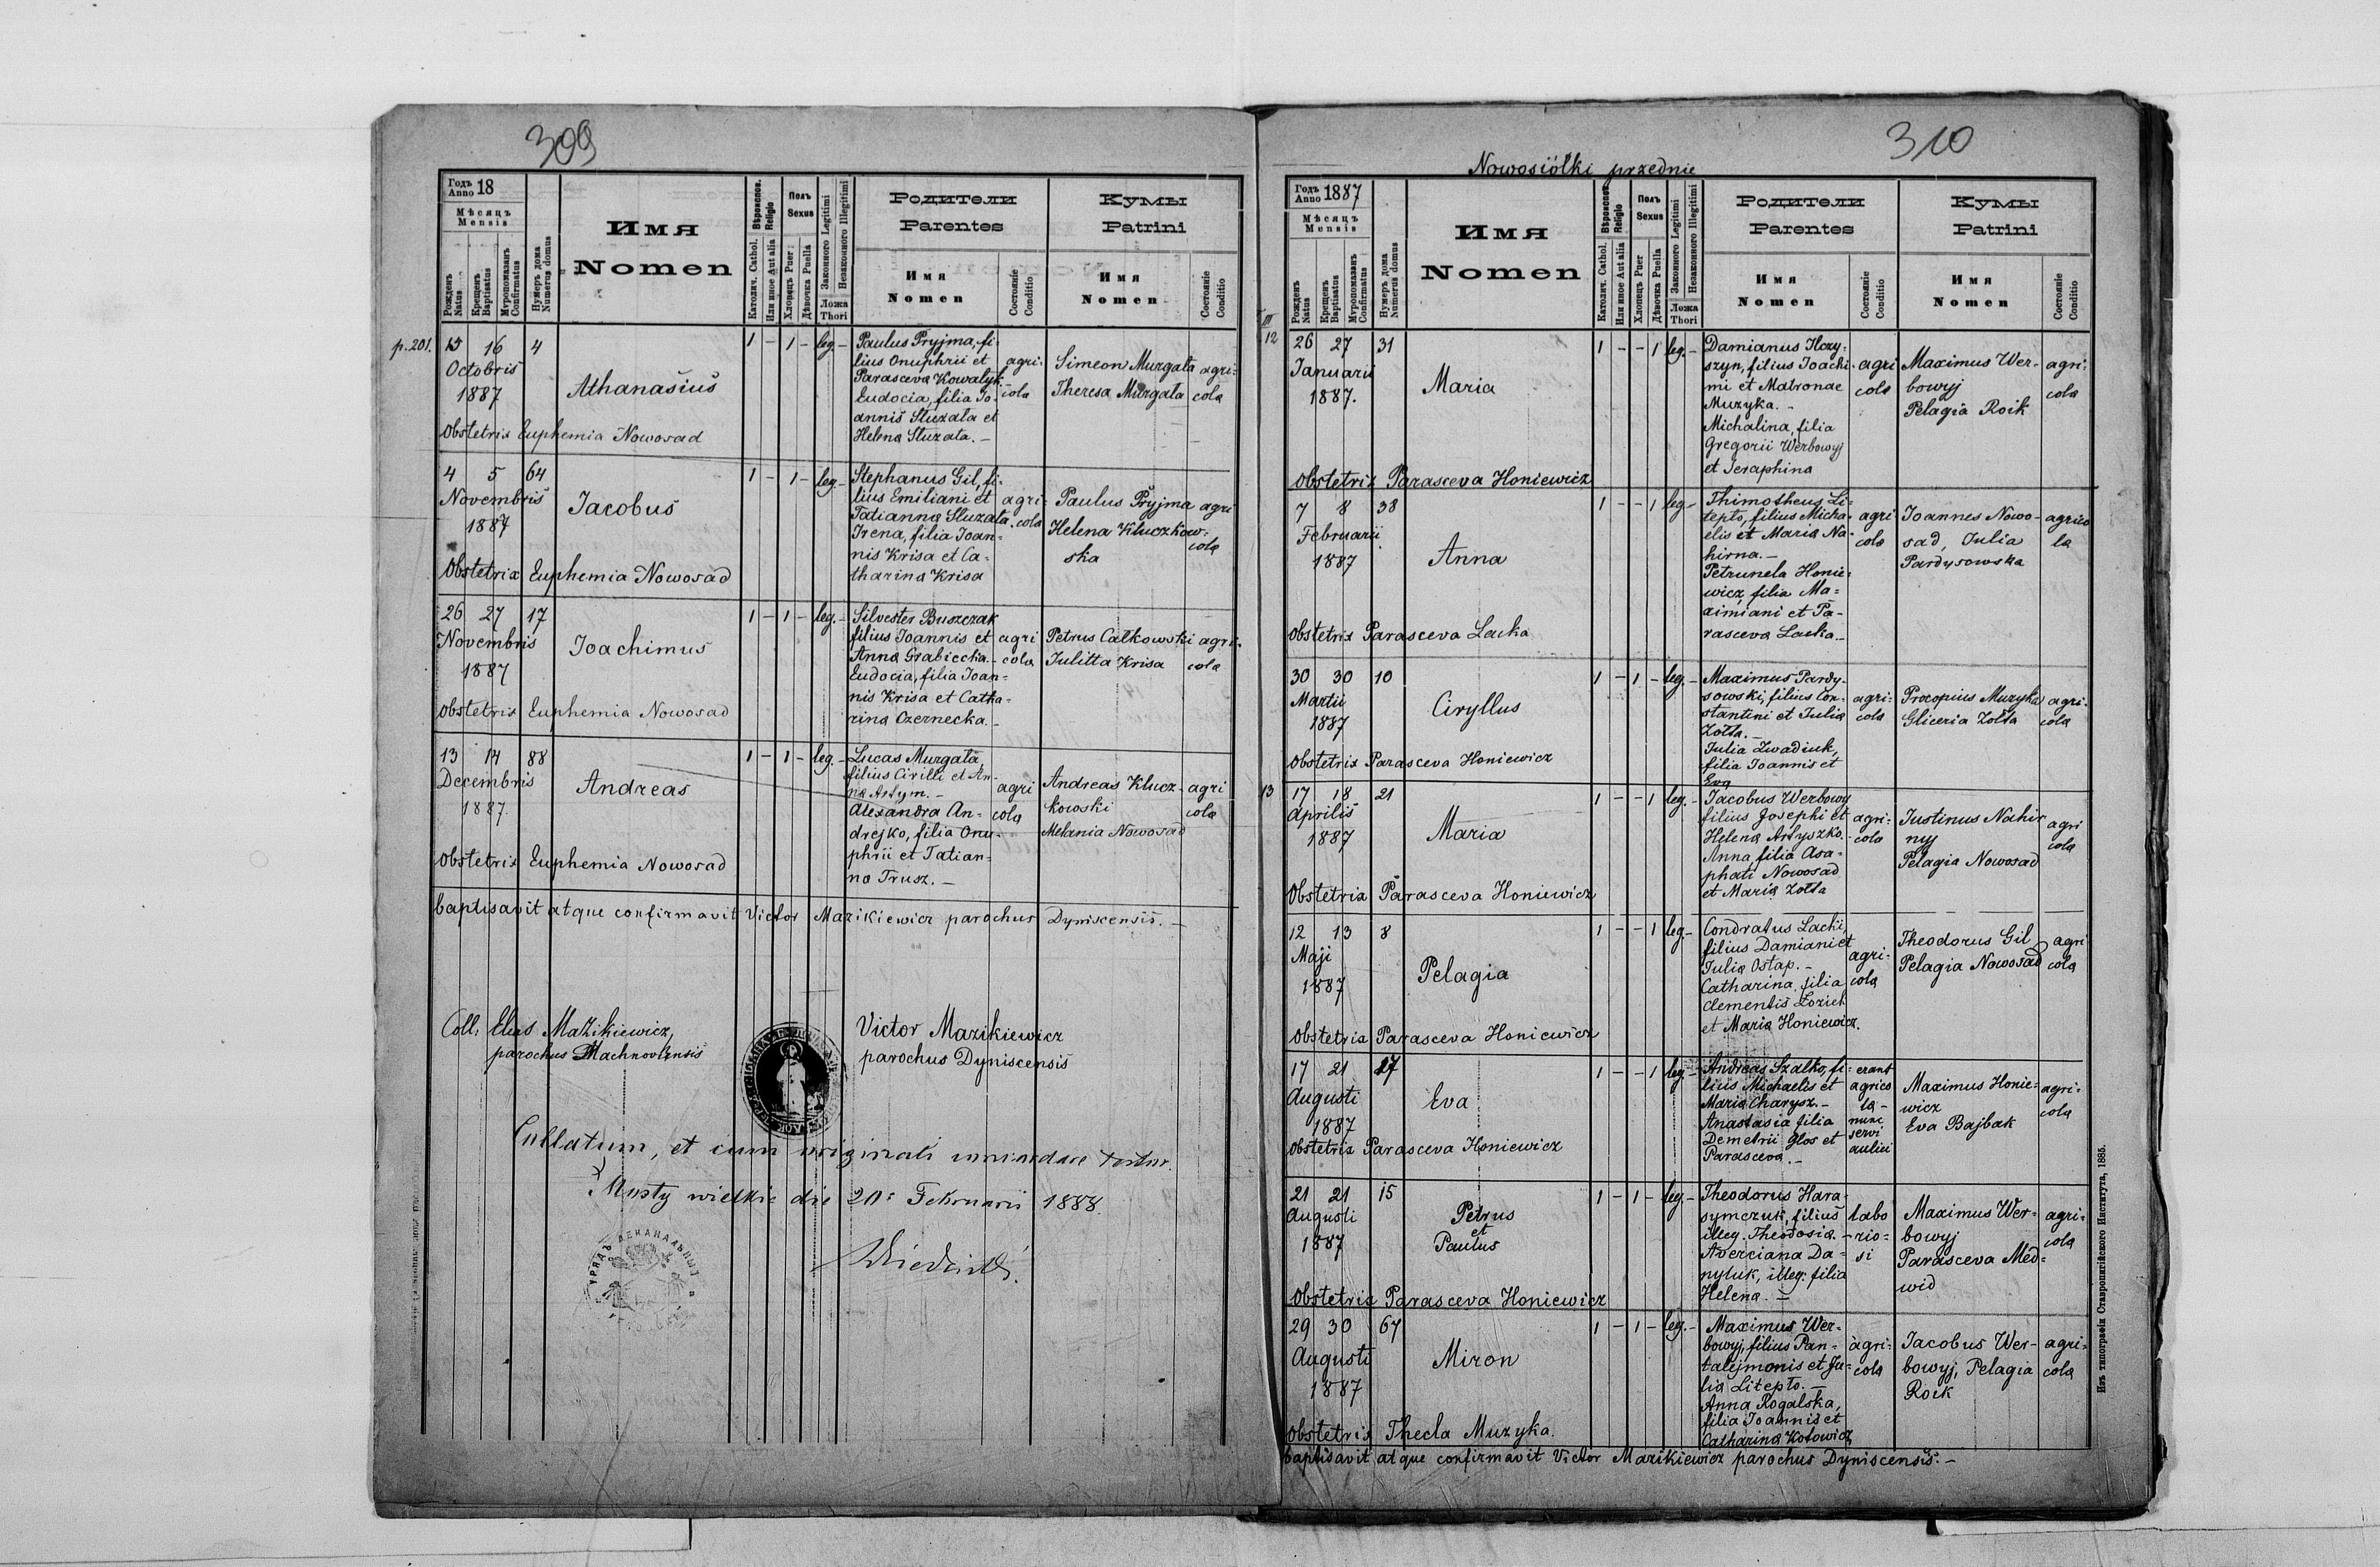 309
Годъ
Anno 18
Мѣсяцъ
Mensis
Рожденъ
Natus
Крещенъ
Baptisatus
Мѵропомазанъ
Confirmatus
Нумеръ дома
Numerus domus
Имя
Nomen
Вѣроиспов.
Religio
Католич. Cathol.
Или иное Aut alia
Полъ
Sexus
Хлопецъ Puer
Дѣвочка Puella
Законного Legitimi
Незаконного Illegitimi
Ложа
Thori
Родители
Parentes
Имя
Nomen
Состояніе
Conditio
Кумы
Patrini
Имя
Nomen
Состояніе
Conditio
p. 201.
15 16 4
Octobris
1887
Athanasius
1 - 1 - leg. -
Paulus Pryjma, fi-
lius Onuphrii et
Parasceva Kowalyk. -
Eudocia, filia Jo-
annis Sluzała et
Helena Sluzała. -
agri-
cola
Simeon Murgała
Theresa Murgała
agri-
cola
Obstetrix Euphemia Nowosad
4 5 64
Novembris
1887
Jacobus
1 - 1 - leg. -
Stephanus Gil, fi-
lius Emiliani et
Tatianna Sluzała.
Irena, filia Joan-
nis Krisa et Ca-
tharina Krisa
agri-
cola
Paulus Pryjma
Helena Kluczkow-
ska
agri
cola
Obstetrix Euphemia Nowosad
26 27 17
Novembris
1887
Joachimus
1 - 1 - leg. -
Silvester Buszczak
filius Joannis et
Anna Grabiecka. -
Eudocia, filia Joan-
nis Krisa et Catha-
rina Czernecka. -
agri
cola
Petrus Całkowski
Julitta Krisa
agri-
cola
Obstetrix Euphemia Nowosad
13 14 88
Decembris
1887.
Andreas
1 - 1 - leg. -
Lucas Murgała,
filius Cirilli et An-
na Artym. -
Alexandra An-
drejko, filia Onu-
phrii et Tatian-
na Trusz. -
agri
cola
Andreas Klucz-
kowski
Melania Nowosad
agri
cola
Obstetrix Euphemia Nowosad
Baptisavit atque confirmavit Victor Mazikiewicz parochus Dyniscensis. -
Coll. Elias Mazikiewicz,
parochus Machnovensis
Victor Mazikiewicz
parochus Dyniscensis
Collatum, et cum originali
Mosty wielkie die 20 Februarii 1888.
310
Nowosiółki przednie
Годъ
Anno 1887
Мѣсяцъ
Mensis
Рожденъ
Natus
Крещенъ
Baptisatus
Мѵропомазанъ
Confirmatus
Нумеръ дома
Numerus domus
Имя
Nomen
Вѣроиспов.
Religio
Католич. Cathol.
Или иное Aut alia
Полъ
Sexus
Хлопецъ Puer
Дѣвочка Puella
Законного Legitimi
Незаконного Illegitimi
Ложа
Thori
Родители
Parentes
Имя
Nomen
Состояніе
Conditio
Кумы
Patrini
Имя
Nomen
Состояніе
Conditio
III
12
26 27 31
Januarii
1887.
Maria
1 - - 1 leg. -
Damianus Ilczy-
szyn, filius Joachi-
mi et Matronae
Muzyka. -
Michalina, filia
Gregorii Werbowyj
et Seraphina
agri
cola
Maximus Wer-
bowyj
Pelagia Roik
agri-
cola
Obstetrix Parasceva Honiewicz
7 8 38
Februarii
1887
Anna
1 - - 1 leg. -
Thimotheus Li-
tepło, filius Micha-
elis et Maria Na-
hirna. -
Petrunela Honie-
wicz, filia Ma-
ximiani et Pa-
rasceva Lacka. -
agri
cola
Joannes Nowo-
sad, Julia
Pardysowska
agrico
la
Obstetrix Parasceva Lacka
30 30 10
Martii
1887
Ciryllus
1 - 1 - leg. -
Maximus Pardy-
sowski, filius Con-
stantini et Julia
Zołta. -
Julia Zwadiuk,
filia Joannis et
Eva
agri-
cola
Procopius Muzyka
Gliceria Zołta
agri-
cola
Obstetrix Parasceva Honiewicz
13
17 18 21
Aprilis
1887
Maria
1 - - 1 leg. -
Jacobus Werbowyj
filius Josephi et
Helena Artyszko. -
Anna, filia Asa-
phati Nowosad
et Maria Zołta
agri-
cola
Justinus Nahir
nyj
Pelagia Nowosad
agri
cola
Obstetrix Parasceva Honiewicz
12 13 8
Maji
1887
Pelagia
1 - - 1 leg. -
Condratus Lacki,
filius Damiani et
Julia Ostap. -
Catharina, filia
Clementis Łozich
et Maria Honiewicz.
agri-
cola
Theodorus Gil
Pelagia Nowosad
agri
cola
Obstetrix Parasceva Honiewicz
17 21 27
Augusti
1887
Eva
1 - - 1 leg. -
Andreas Szałko, fi-
lius Michaelis et
Maria Charysz. -
Anastasia filia
Demetrii Głos et
Parasceva. -
erant
agrico
la -
nunc
servi
aulici
Maximus Honie-
wicz
Eva Bajbak
agri-
cola
Obstetrix Parasceva Honiewicz
21 21 15
Augusti
1887
Petrus
et
Paulus
1 - 1 - leg. -
Theodorus Hara-
symczuk, filius
illeg. Theodosia. -
Awerciana Da-
nyluk, illeg. filia
Helena. -
labo
rio-
si
Maximus Wer-
bowyj
Parasceva Med-
wid
agri-
cola
Obstetrix Parasceva Honiewicz
29 30 67
Augusti
1887
Miron
1 - 1 - leg. -
Maximus Wer-
bowyj, filius Pan-
talejmonis et Ju-
lia Litepło. -
Anna Rogalska,
filia Joannis et
Catharina Kotowicz
agri-
cola
Jacobus Wer-
bowyj, Pelagia
Roik
agri-
cola
Obstetrix Thecla Muzyka.
Baptisavit atque confirmavit Victor Mazikiewicz parochus Dyniscensis. -
Изъ типографіи Ставропигійского Института, 1885.